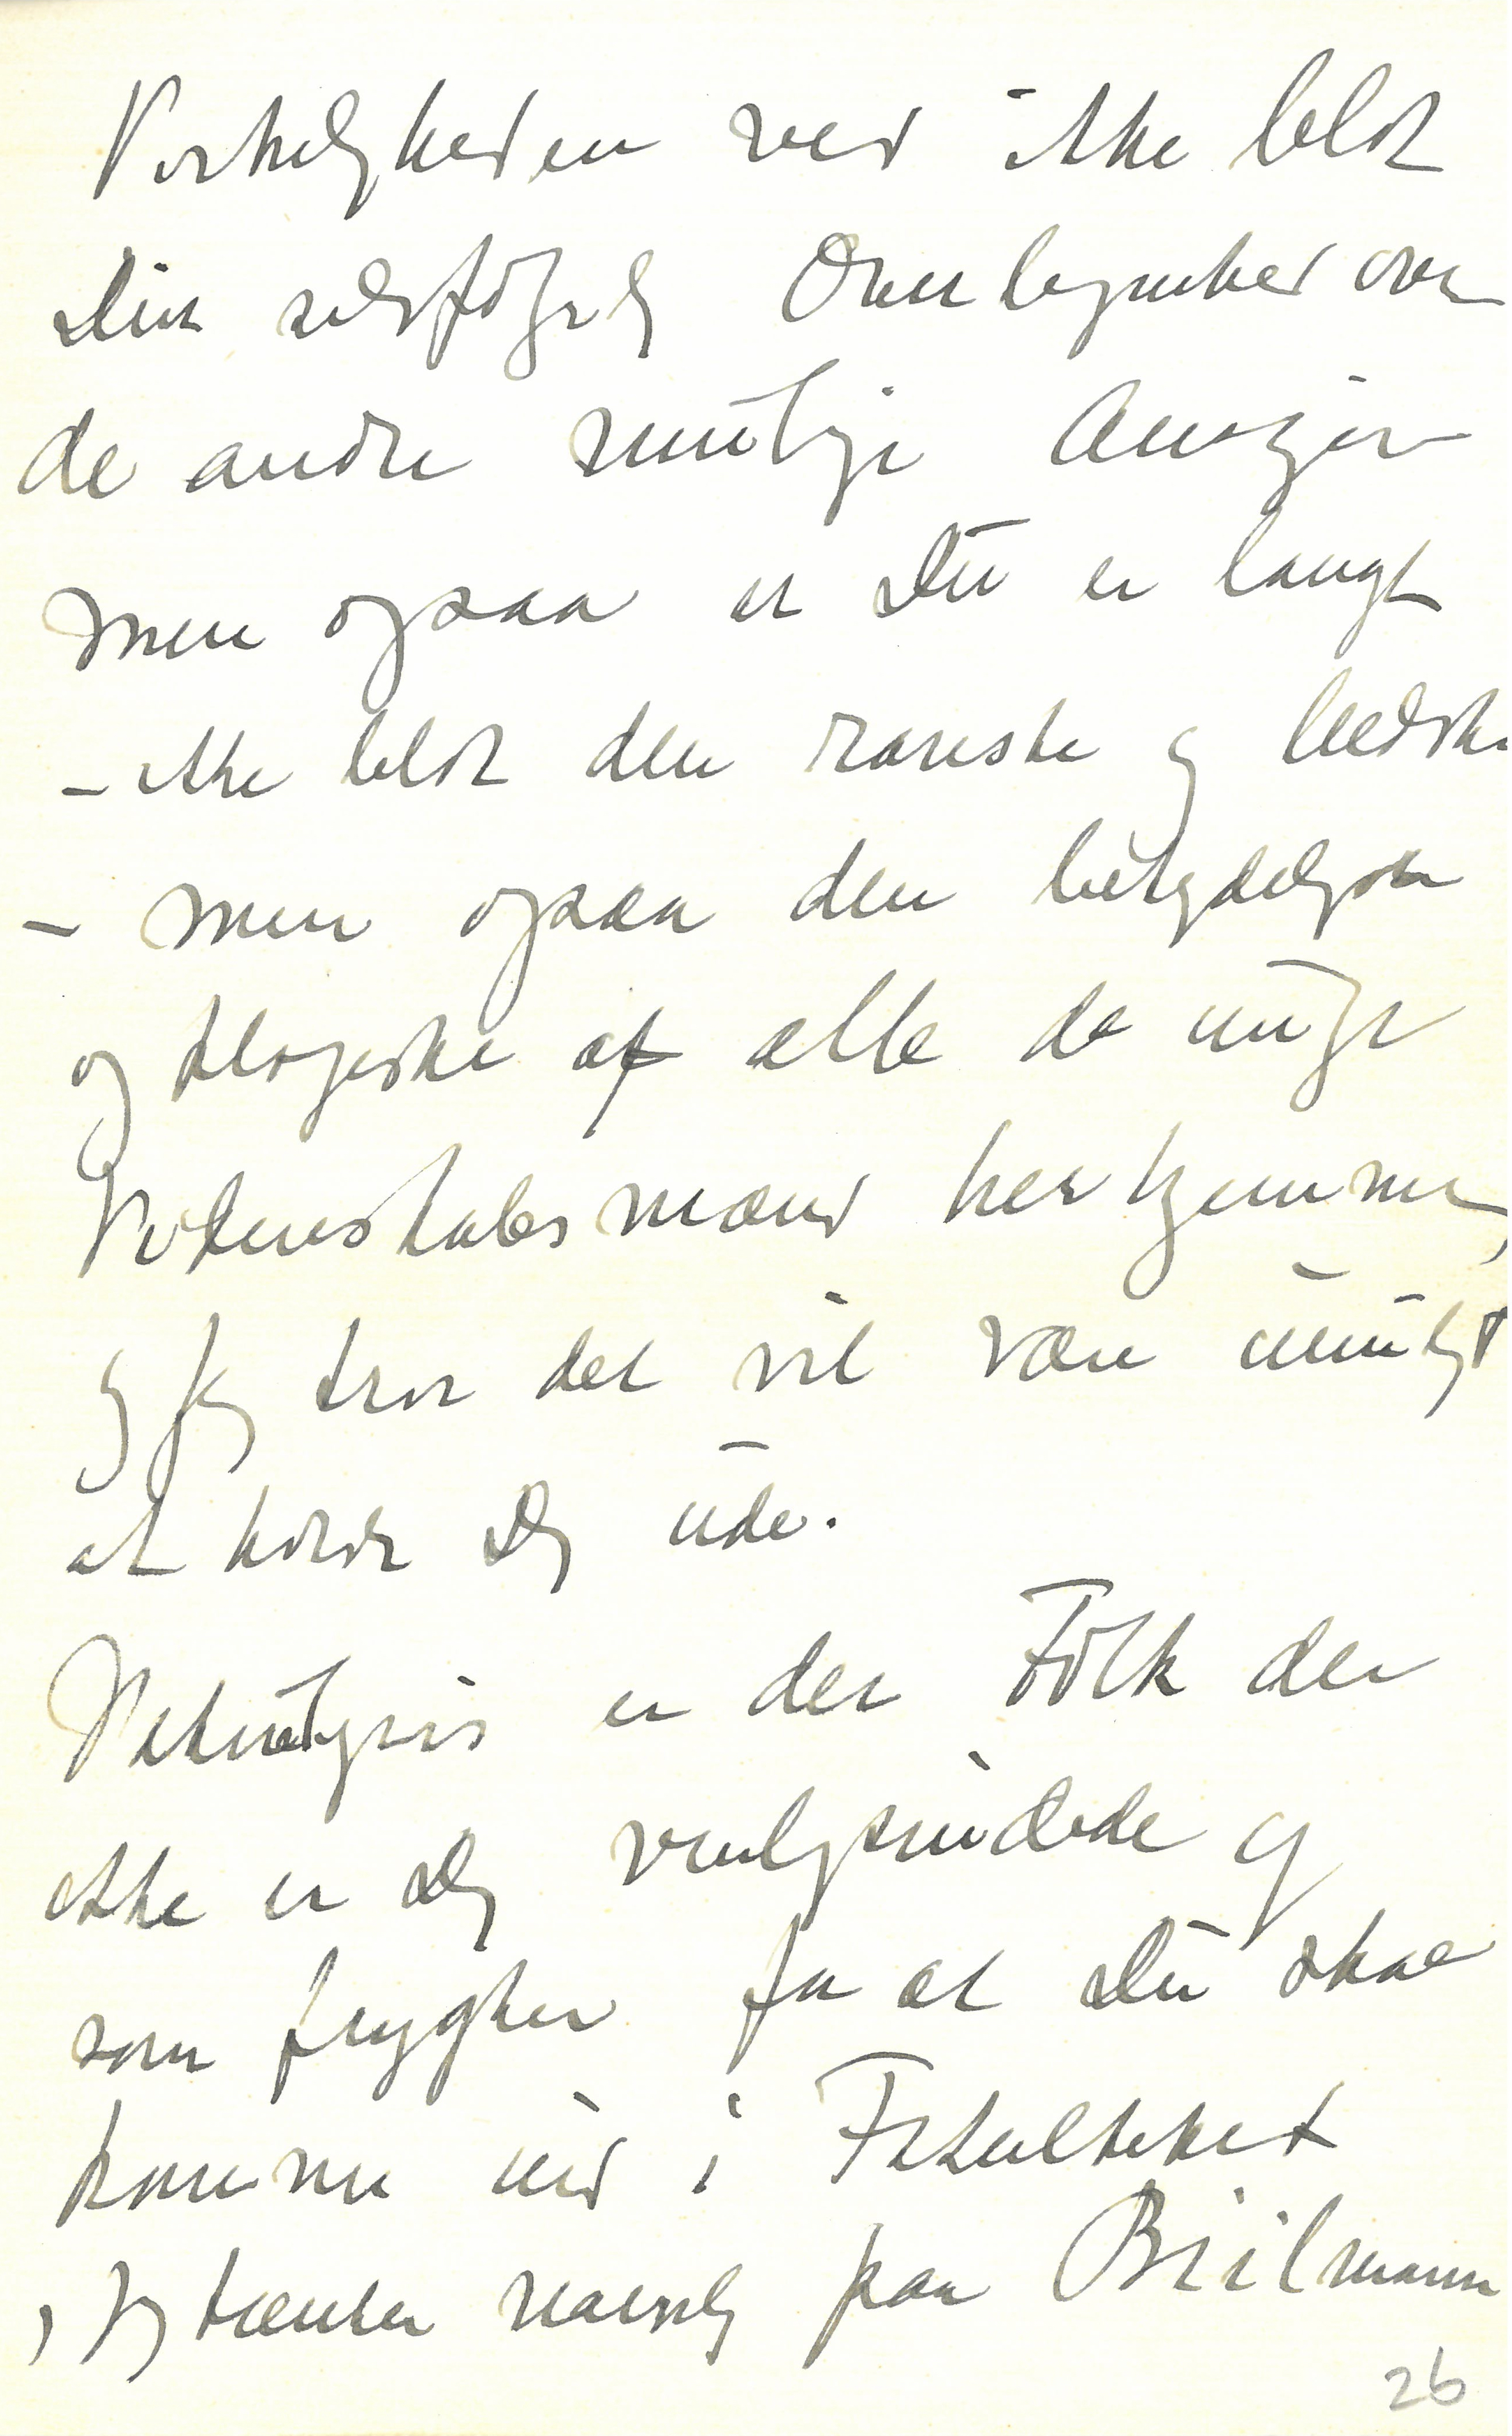 Virkeligheden ved ikke blot
Din selvfølgelig Overlegenhed over
de andre mulige
men ogsaa at Du er langt
- ikke blot den rareste og bedste
- men ogsaa den betydeligste
og klogeste af alle de unge
Videnskabsmænd herhjemme,
og jeg tror det vil være umuligt
at holde Dig ude.
Naturligvis er der Folk der
ikke er Dig venligsindede og
som frygter for at Du skal
komme ind i Fakultetet
, jeg tænker navnlig paa Biilmann
26